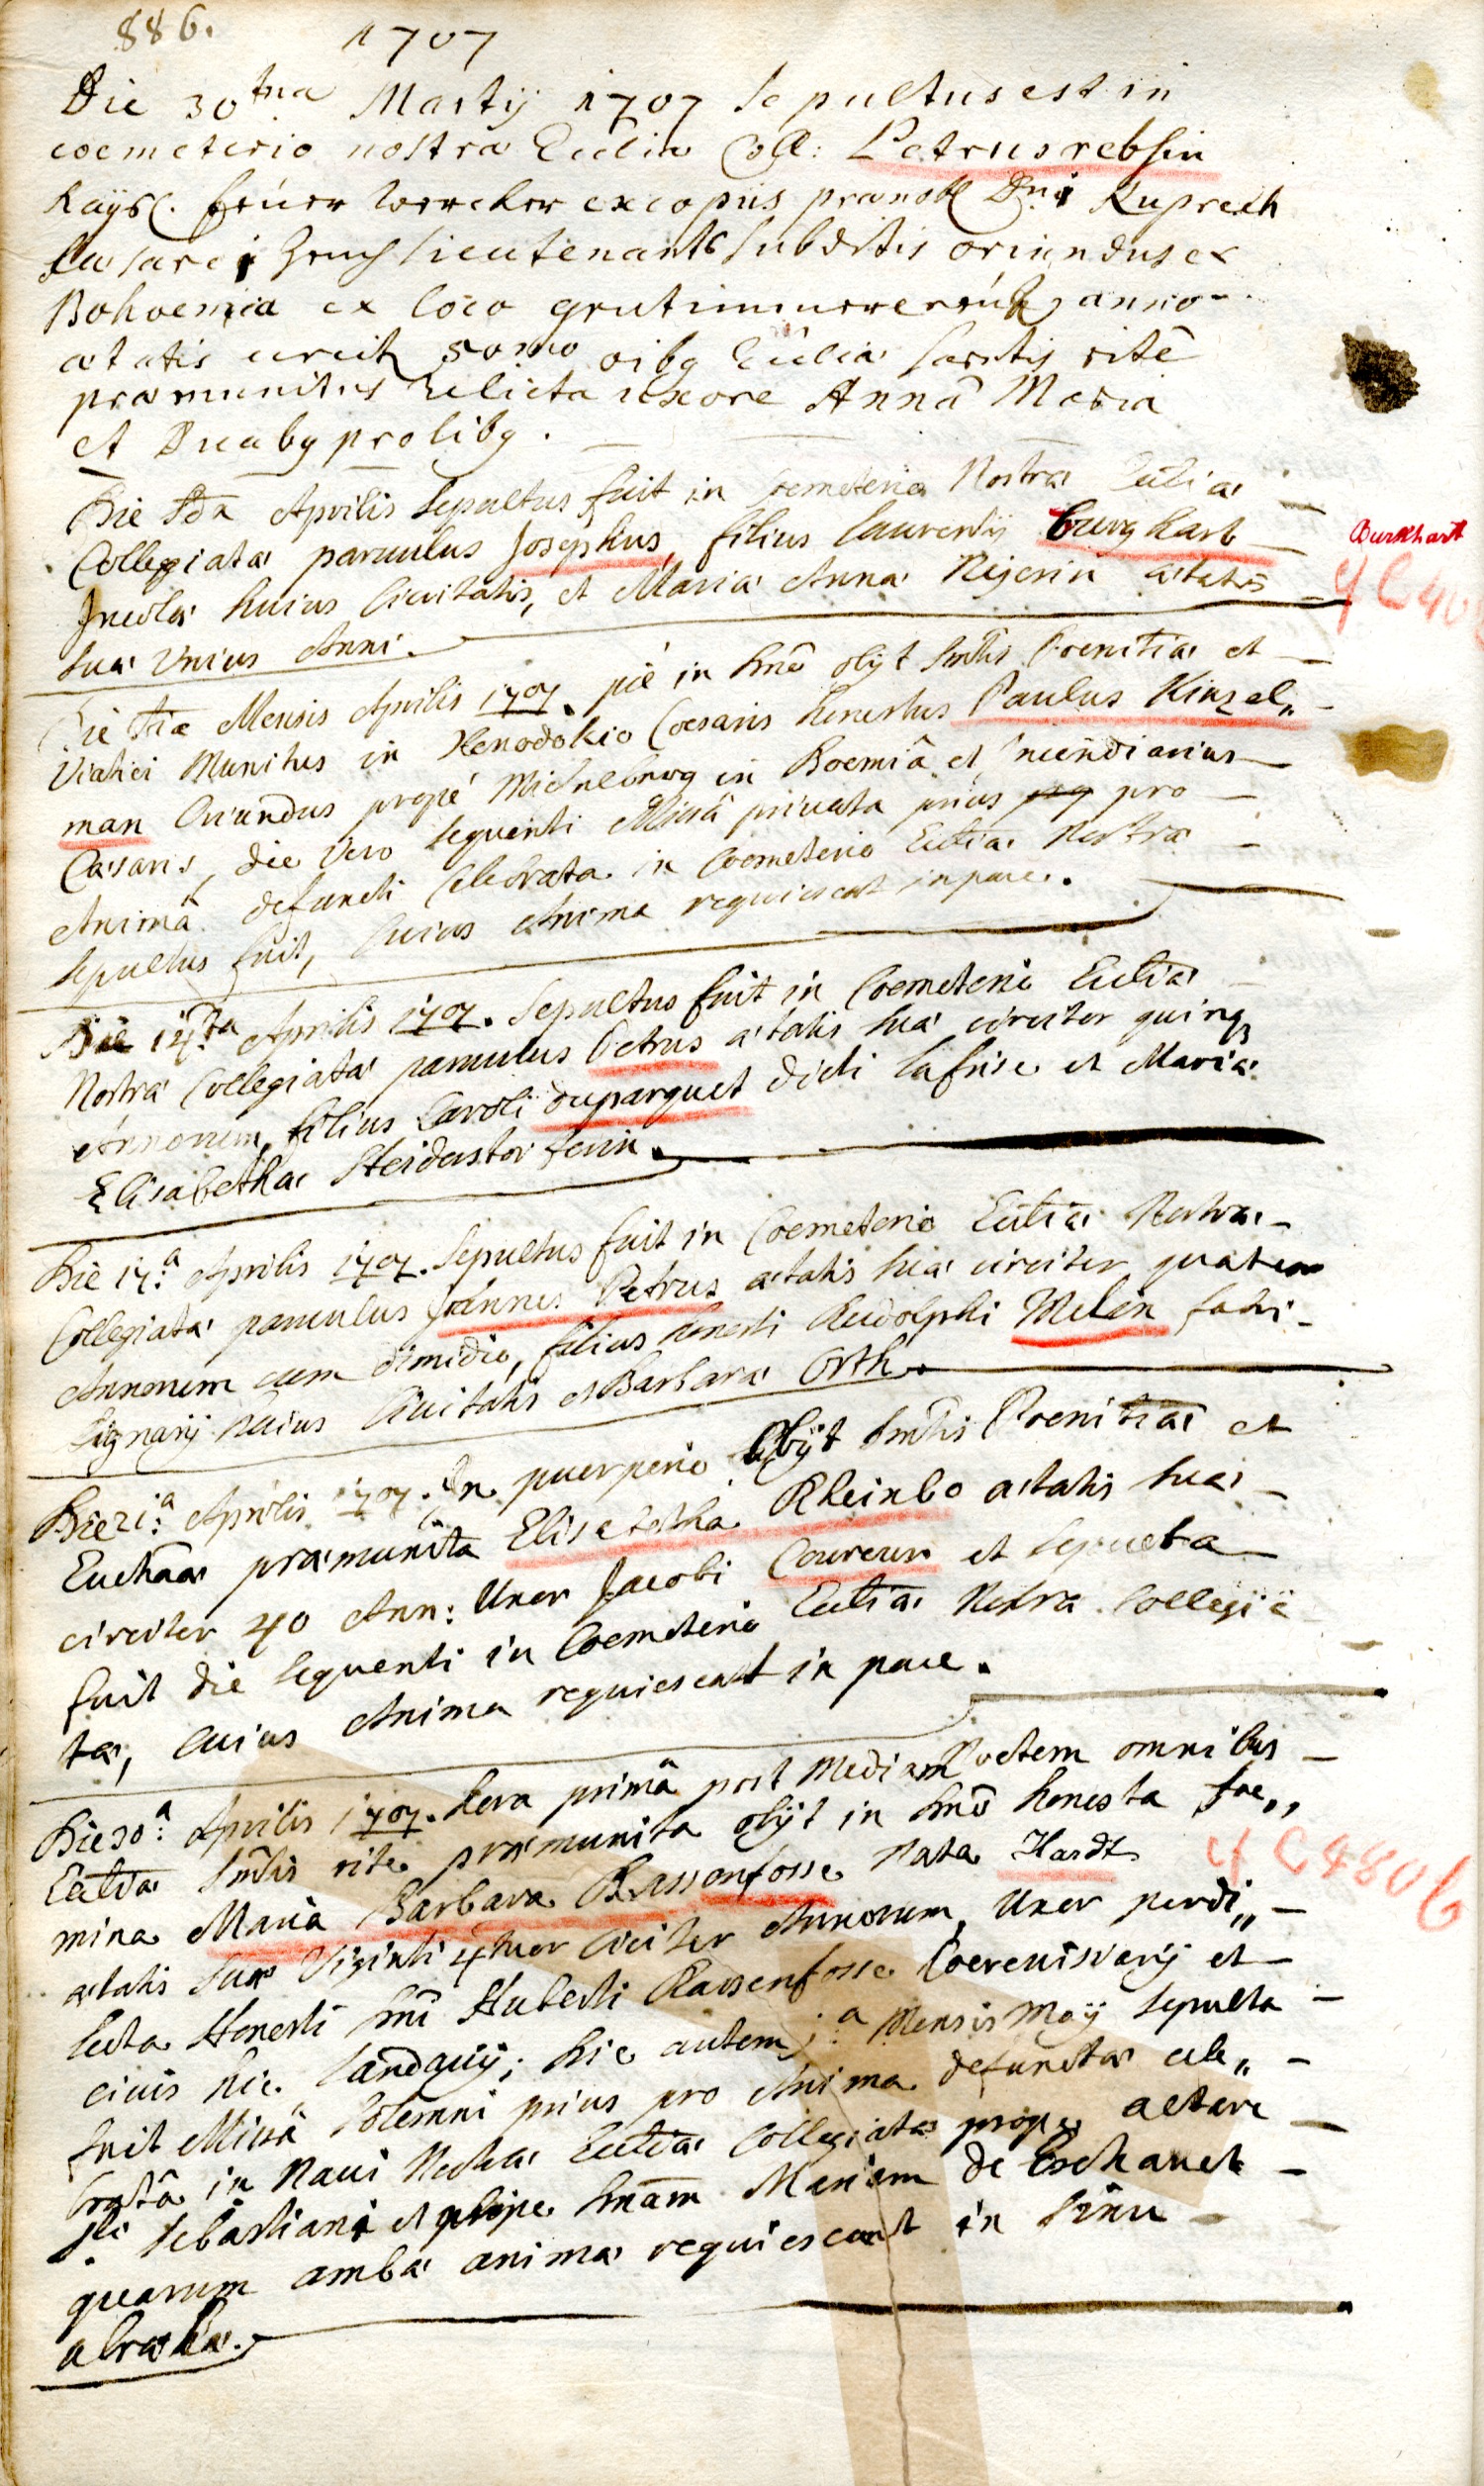 886.
1707
Die 30tna Martij 1707 sepultus est in
coemeterio nostra Eccliæ Coll: Petrus rebsin
Kaÿsl. feüer wercker ex copiis prænob Dni Ruprech
Cæsarei lieutenants subditis oriundus ex
Bohoemia ex loco anno
ætatis circit 50mo oibq Ecclia sacrtis ritê
præmunitus relicta uxore Annâ Maria
et Duabq prolibq.
Die 2da Aprilis Sepultus fuit in Coemeterio Nostræ Ecclia
Collegiatæ paruulus Josephus, filius Laurentij burghart
Burkhart
Incolæ huius Ciuitatis, et Mariæ Annæ Rejerin ætatis
suæ Unius Anni.
Die Mensis Aprilis 1707. piè in Dnô obijt Smtis Poenitiæ et
Viatici Munitus in Xenodokio Cæsaris honestus Paulus Kinzel„
man Oriundus propè Michelburg in Boemiâ et incendiarius
Cæsaris, die Vero sequenti Missâ priuata prius pro
Animâ defuncti Celebrata in Coemeterio Ecctiæ Nostra
sepultus fuit, Cuius Anima requiescat in pace.
Die 14ta Aprilis 1707. Sepultus fuit in Coemeterio Ecctiæ
Nostræ Collegiatæ paruulus Petrus ætatis suæ circiter quinq
Annorum, filius Caroli duparquet dicti Lafrise et Mariæ
Elisabethæ Heiderstorferin.
Die 17.a Aprilis 1707. Sepultus fuit in Coemeterio Ecctiæ Nostræ
Collegiatæ paruulus Joannes Petrus ætatis suæ circiter quatuor
Annorum cum dimidio, filius honesti Rudolphi Melin fabri
Lignarij huius Ciuitatis et Barbaræ Orth.
Die 21.a Aprilis 1707. In puerperio obijt Smtis Poenitiæ et
Euchaæ præmunita Elisabetha Rheinbo ætatis suæ
circiter 40 Ann: Uxor Jacobi Coureur et Sepulta
fuit die sequenti in Coemeterio Ecctiæ Nostra Collegia
ta, Cuius Anima requiescat in pace.
Die 30.a Aprilis 1707. hora primâ post Mediam Noctem omnibus
Ecctiæ Smtis rite præmunita obijt in Dnô honesta fœ„
mina Maria Barbara Rassenfosse Nata Hardt
4 C 4806
ætatis Suæ Viginti 4tuor Citciter Annorum, Uxor perdi„
lecta Honesti Dni Huberti Rassenfosse Coereuisiarij et
ciuis hic Landauij; hic autem 1.a Mensis Maij Sepulta
fuit Missâ Solemni prius pro Anima defunctæ cele„
bratâ in Naui Nostræ Ecctiæ Collegiatæ prope altare
Sti Sebastiani et prope Dnam Mariam de
quarum ambæ animæ requiescant in Sinu
abrahæ.